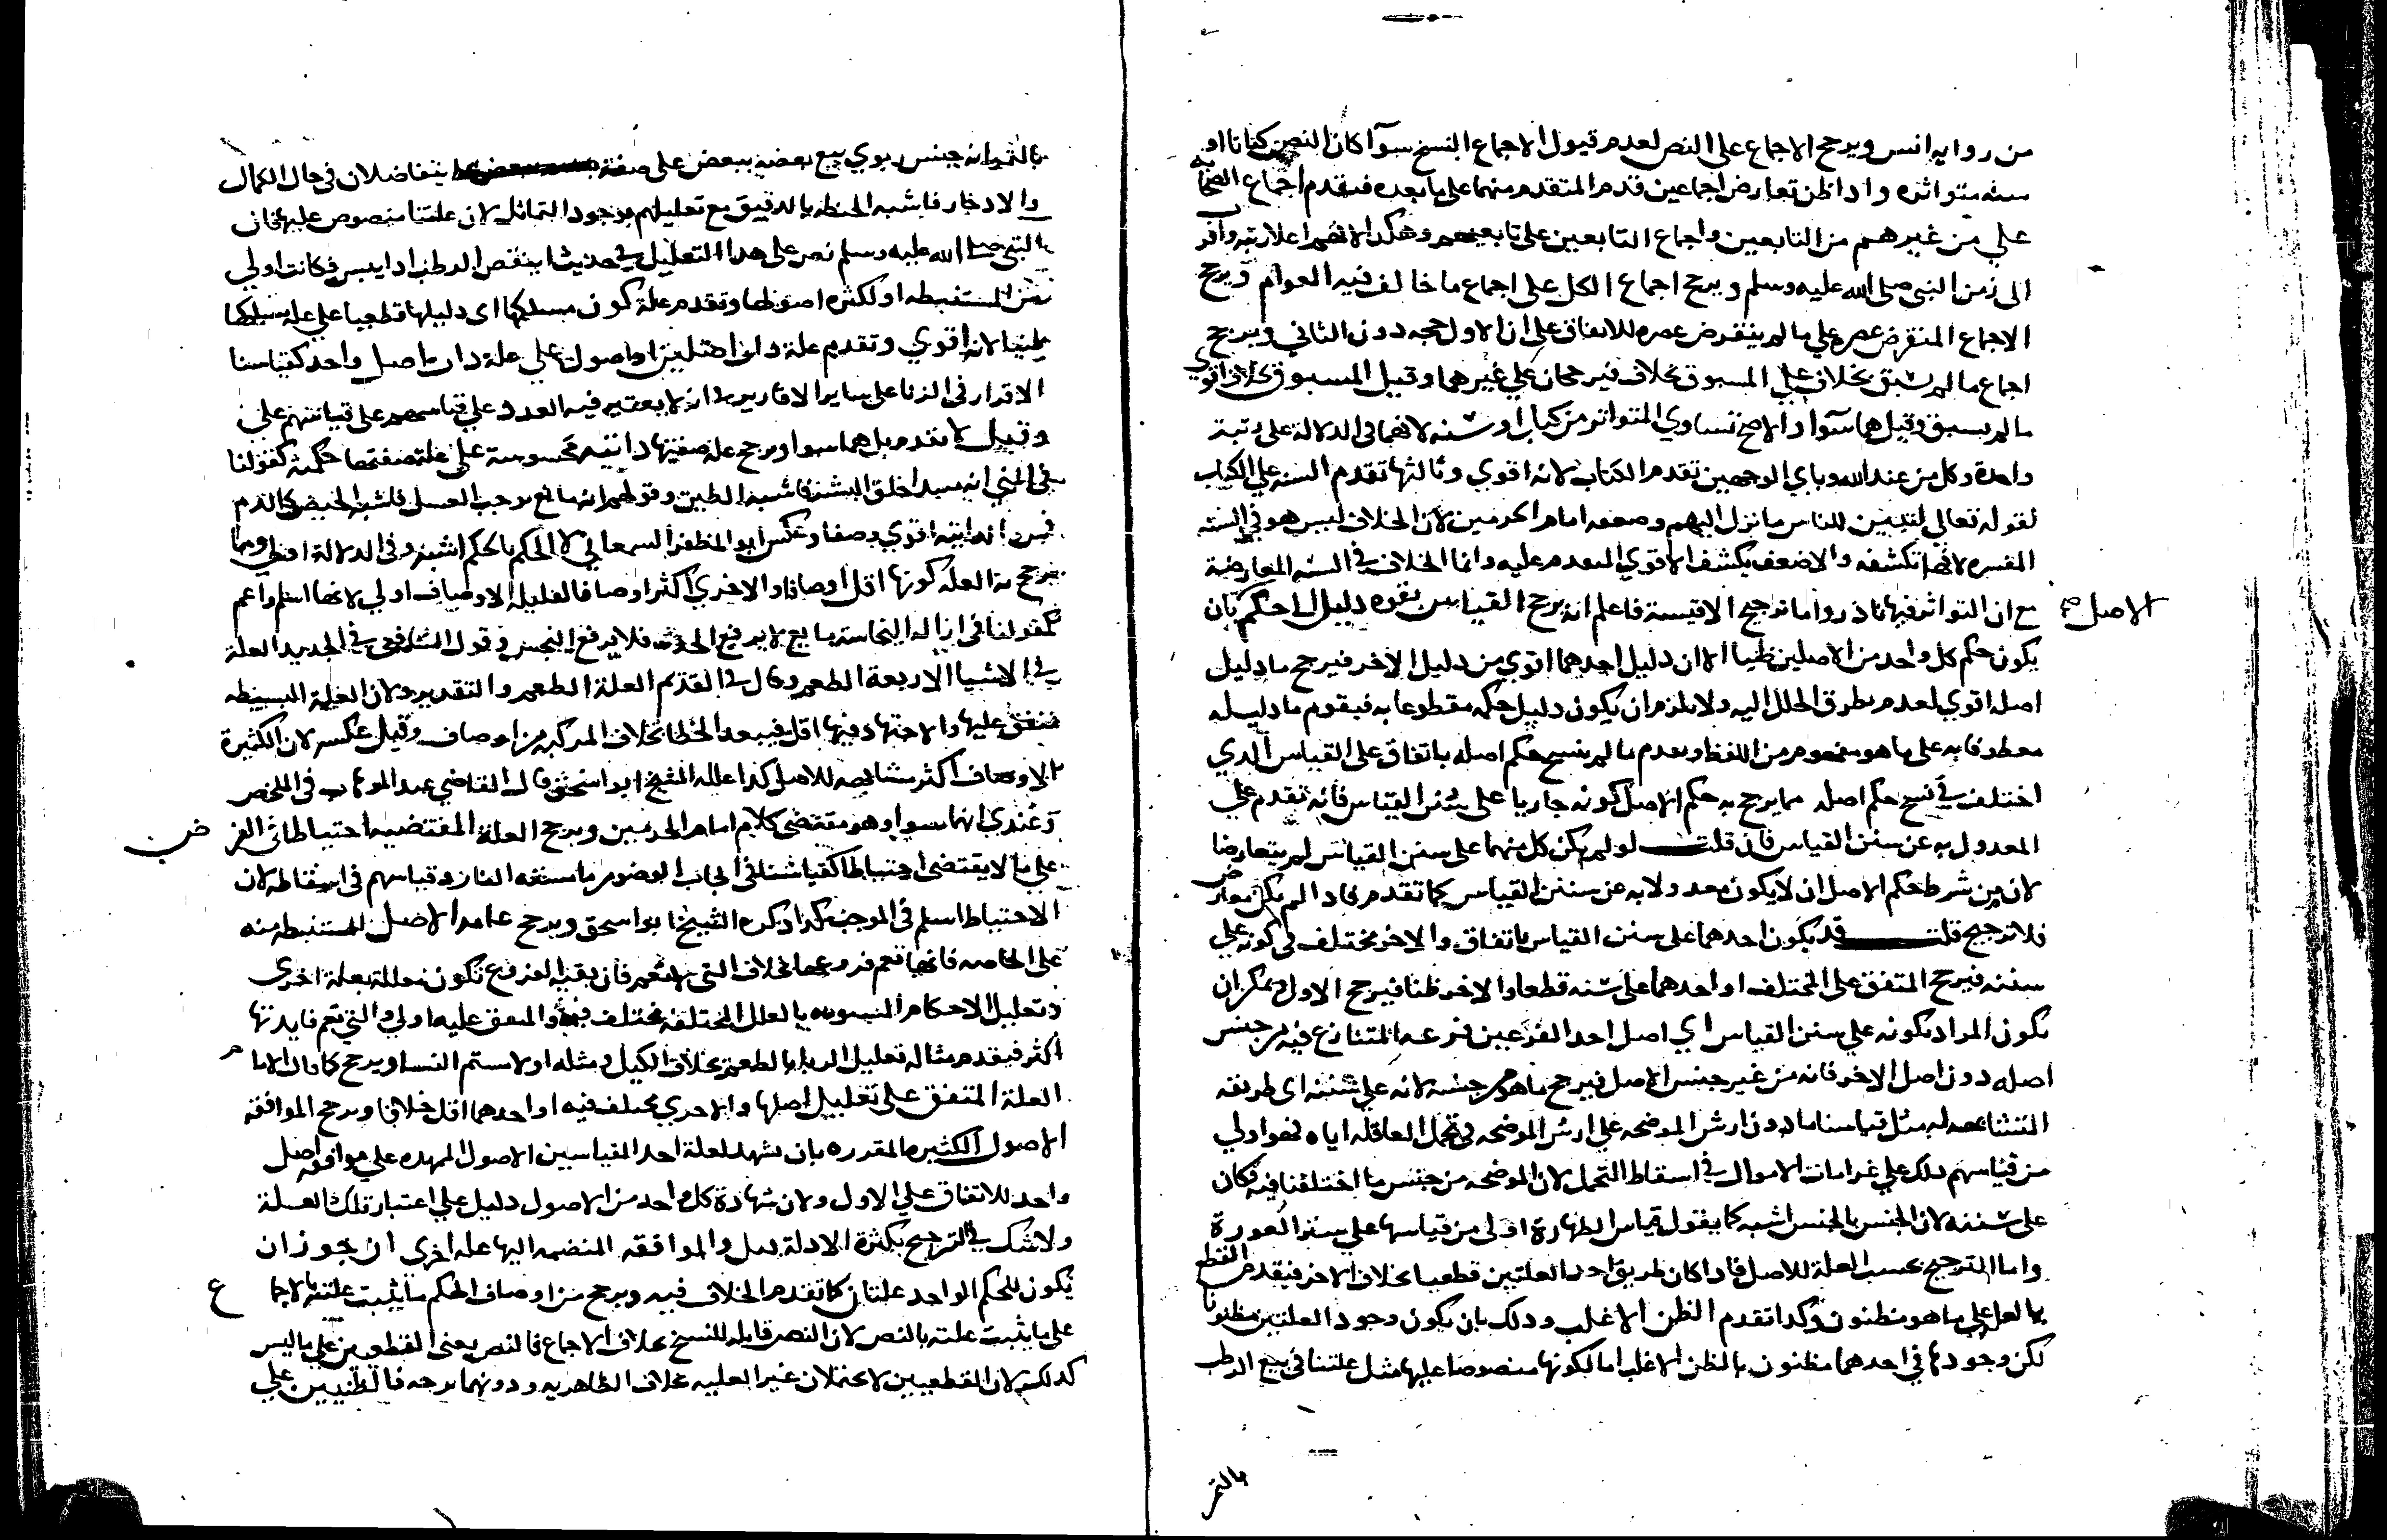 من روايه انس ويرجح الاجماع على النص لعدم قبول الاجماع النسخ سوآ كان النص كتابا او
سنه متواتره واذا ظن تعارض اجماعين قدم المتقدم منهما على ما بعده فيقدم اجماع الصحابة
على من غيرهم من التابعين واجماع التابعين على تابعيهم وهكذا لانهم اعلا رتبه واقرب
الى زمن النبي صلى الله عليه وسلم ويرجح اجماع الكل على اجماع ما خالف فيه العوام ويرجح
الاجماع المنقرض عصره على ما لم ينقرض عصره للاتفاق على ان الاول حجه دون الثاني ويرجح
اجماع ما لم يسبق بخلاف على المسبوق بخلاف فيرجحان على غيرهما وقيل المسبوق بخلاف اقوي
ما لم يسبق وقيل هما سوآ والاصح تساوي المتواتر من كتاب او سنه لانهما في الدلالة على رتبة
واحدة وكل من عند الله وباي الوجهين تقدم الكتاب لانه اقوي وثالثها تقدم السنه على الكتاب
لقوله تعالى لتبين للناس ما نزل اليهم وضعفه امام الحرمين لان الخلاف ليس هو في السنه
المفسره لانها تكشفه والاضعف يكشف الاقوي المقدم عليه وانما الخلاف في السنه المعارضة
مع ان التواتر فيها نادر واما ترجيح الاقيسة فاعلم انه يرجح القياس بقوه دليل حكم بان
الاصل صح
يكون حكم كل واحد من الاصلين ظنيا الا ان دليل احدهما اقوي من دليل الاخر فيرجح ما دليل
اصله اقوي لعدم تطرق الخلل اليه ولا يلزم ان يكون دليل حكمه مقطوعا به فيقدم ما دليله
منطوقا به على ما هو مفهوم من اللفظ ويقدم ما لم ينسخ حكم اصله باتفاق على القياس الذي
اختلف في نسخ حكم اصله مما يرجح به حكم الاصل كونه جاريا على سنن القياس فانه تقدم على
المعدول به عن سنن القياس فان قلت لو لم يكن كل منهما على سنن القياس لم يتعارضا
لان من شرط حكم الاصل ان لا يكون معدولا به عن سنن القياس كما تقدم فاذا لم يكن معارض
فلا ترجيح قلت قد يكون احدهما على سنن القياس باتفاق والاخر مختلف في كونه على
سننه فيرجح المتفق على المختلف او احدهما على سننه قطعا والاخر ظنا فيرجح الاول ويمكن ان
يكون المراد بكونه على سنن القياس اي اصل احد الفرعين فرعه المتنازع فيه من جنس
اصله دون اصل الاخر فانه من غير جنس الاصل فيرجح ما هو من جنسه لانه على سننه اى طريقه
مثل قياسنا ما دون ارش الموضحه على ارش الموضحه في تحمل العاقله اياه فهو اولي
من قياسهم ذلك على غرامات الاموال في اسقاط التحمل لان الموضحه من جنس ما اختلفنا فيه فكان
على سننه لان الجنس بالجنس اشبه كما يقول قياس الطهارة اولى من قياسها على ستر العورة
واما الترجيح بحسب العلة للاصل فاذا كان طريق احد العلتين قطعيا بخلاف الاخر فيقدم القطع
بالعله على ما هو مظنون وكذا تقدم الظن الاغلب وذلك بان يكون وجود العلتين مظنونا
لكن وجودها في احدهما مظنون بالظن الاغلب اما لكونها منصوصا عليها مثل علتنا في بيع الرطب
بالتمر
بالتمر انه جنس ربوي بيع بعضه ببعض على صفة يتفاضلان في حال الكمال
والادخار فاشبه الحنطه بالدقيق مع تعليلهم بوجود التماثل لان علتنا منصوص عليها فان
النبي صلى الله عليه وسلم نص على هذا التعليل في حديث اينقص الرطب اذا يبس فكانت اولي
من المستنبطه او لكثره اصولها وتقدم علة كون مسلكها اى دليلها قطعيا على عله مسلكها
ظنيا لانه اقوي وتقديم علة ذات اصلين او اصول على علة ذات اصل واحد كقياسنا
الاقرار فى الزنا على ساير الاقارير في انه لا يعتبر فيه العدد
وقيل لا تقدم بل هما سوا ويرجح علة صفتها ذاتيه محسوسة على علة صفتها حكمية كقولنا
فى المني انه مبدا خلق البشر فاشبه الطين وقولهم انه مايع يوجب الغسل فاشبه الحيض كالدم
اقوي وصفا وعكس ابو المظفر السمعاني لان الحكم بالحكم اشبه وفى الدلالة اظهر ومما
يرجح به العله كونها اقل اوصافا والاخري اكثر اوصافا فالقليلة الاوصاف اولي لانها اسلم واعم
كقولنا فى ازالة النجاسة مايع لا يرفع الحدث فلا يرفع النجس وقول الشافعي في الجديد العلة
في الاشيا الاربعة الطعم وقال في القديم العلة الطعم والتقدير ولان العلة البسيطه
متفق عليها والاجتهاد فيها اقل فيبعد الخطا بخلاف المركبه من اوصاف وقيل عكسه لان الكثيرة
الاوصاف اكثر مشابهه للاصل كذا علله الشيخ ابو اسحق قال القاضي عبد الوهاب فى الملخص
وعندي انها سوا وهو مقتضى كلام امام الحرمين ويرجح العلة المقتضيه احتياطا في الفرض
على ما لا يقتضى احتياطا كقياسنا فى ايجاب الوضو مما مسته النار وقياسهم فى اسقاطه لان
الاحتياط اسلم فى الموجب كذا ذكره الشيخ ابو اسحق ويرجح عامه الاصل المستنبطه منه
على الخاصه فانها تعم فروعها بخلاف التي لا تعم فان بقية الفروع تكون معللة بعلة اخرى
وتعليل الاحكام بالعلل المختلفة مختلف فيه والمتفق عليه اولي والتي تعم فايدتها
اكثر فيقدم مثاله تعليل الربا بالطعم بخلاف الكيل ومثله او لامستم النسا ويرجح كما قال الامام
العلة المتفق على تعليل اصلها والاخري مختلف فيه او احدهما اقل خلافا ويرجح الموافقه
الاصول الكثيره المقرره بان يشهد لعلة احد القياسين الاصول الممهده على موافقه اصل
واحد للاتفاق علي الاول ولان شهادة كل واحد من الاصول دليل على اعتبار تلك العلة
ولا شك في الترجيح بكثرة الادلة قيل والموافقه المنضمه اليها عله اخرى ان جوز ان
يكون للحكم الواحد علتان كما تقدم الخلاف فيه ويرجح من اوصاف الحكم ما يثبت علته بالاجماع
على ما يثبت علته بالنص لان النص قابله للنسخ بخلاف الاجماع فالنص يعنى القطعيين على ما ليس
كذلك لان القطعيين لا يحتملان غير العليه بخلاف الظاهريه ودونهما درجه فالظنيين علي